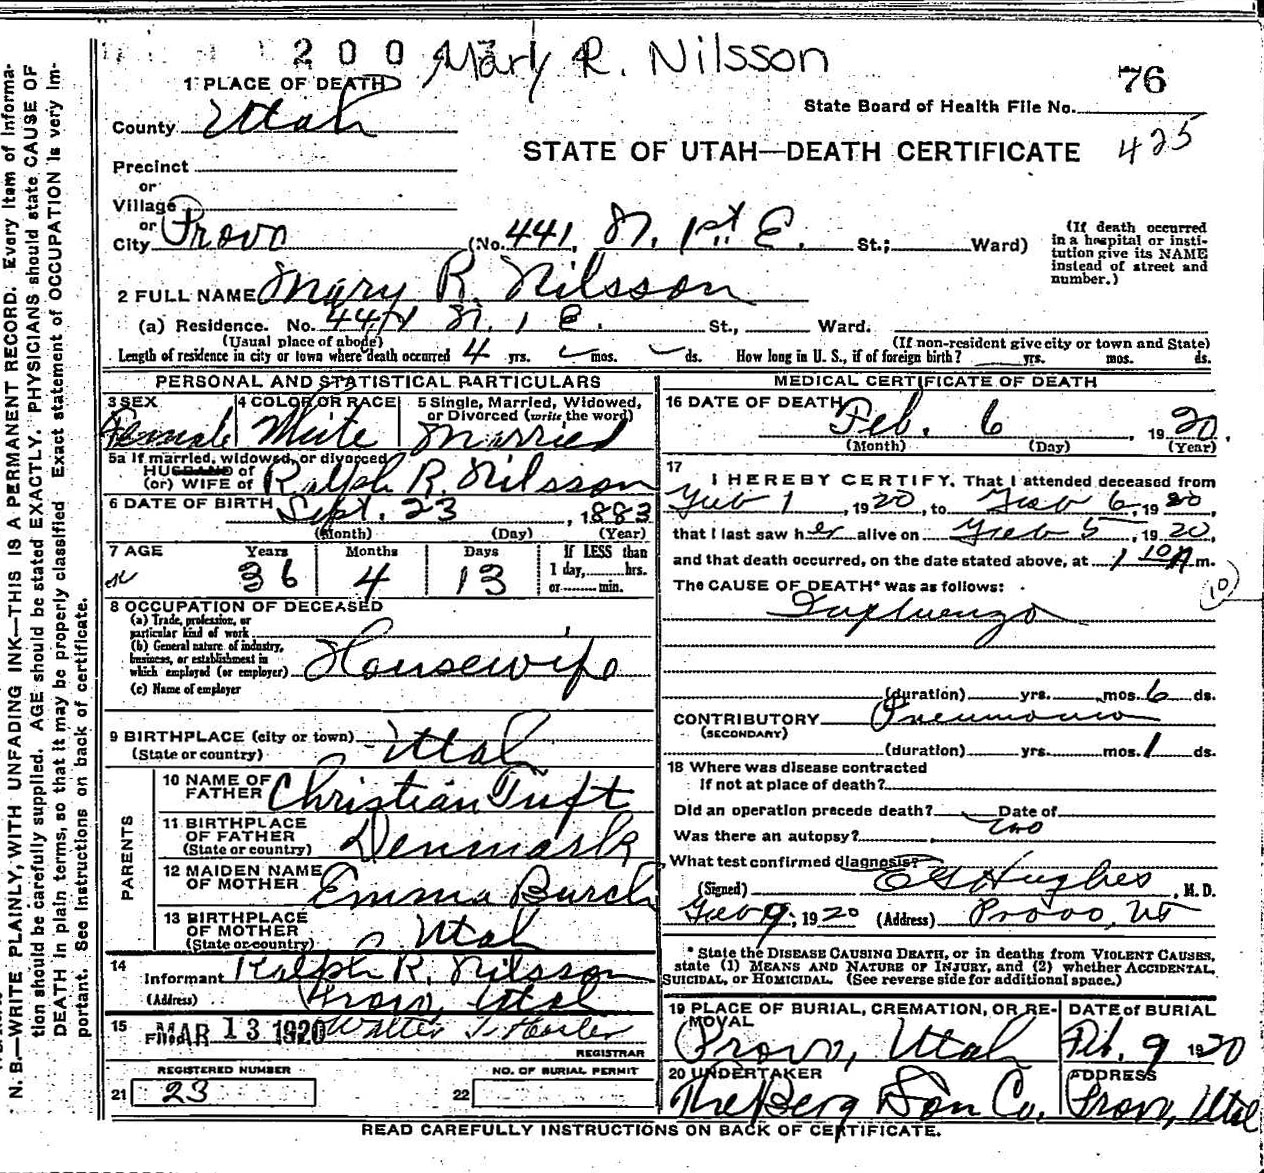 200 Mary R. Nilsson
76
1 PLACE OF DEATH
State Board of Health File No.
County Utah
STATE OF UTAH—DEATH CERTIFICATE 425
Precinct
or
Village
or
City Provo (No. 441, N. 1st E. St.; Ward)
(If death occurred
in a hospital or insti-
tution give its NAME
instead of street and
number.)
2 FULL NAME Mary R. Nilsson
(a) Residence. No. 441 N. 1 E. St., Ward.
(Usual place of abode) (If non-resident give city or town and State)
Length of residence in city or town where death occurred 4 yrs. mos. ds. How long in U. S., if of foreign birth? yrs. mos. ds.
PERSONAL AND STATISTICAL PARTICULARS
3 SEX 4 COLOR OR RACE 5 Single, Married, Widowed,
or Divorced (write the word)
Female White Married
5a If married, widowed, or divorced
HUSBAND of
(or) WIFE of Ralph R. Nilsson
6 DATE OF BIRTH Sept. 23, 1883
(Month) (Day) (Year)
7 AGE Years Months Days If LESS than
1 day, hrs.
or min.
36 4 13
8 OCCUPATION OF DECEASED
(a) Trade, profession, or
particular kind of work
(b) General nature of industry,
business, or establishment in
which employed (or employer) Housewife
(c) Name of employer
9 BIRTHPLACE (city or town) Utah
(State or country)
PARENTS
10 NAME OF
FATHER Christian Tuft
11 BIRTHPLACE
OF FATHER
(State or country) Denmark
12 MAIDEN NAME
OF MOTHER Emma Burch
13 BIRTHPLACE
OF MOTHER
(State or country) Utah
14 Informant Ralph R. Nilsson
(Address) Provo, Utah
15 Filed MAR 13 1920 Walter T. Hasler
REGISTRAR
REGISTERED NUMBER NO. OF BURIAL PERMIT
21 23 22
MEDICAL CERTIFICATE OF DEATH
16 DATE OF DEATH
Feb. 6, 1920.
(Month) (Day) (Year)
17
I HEREBY CERTIFY, That I attended deceased from
Feb 1, 1920, to Feb 6, 1920,
that I last saw her alive on Feb 5, 1920,
and that death occurred, on the date stated above, at 1 10 A m.
The CAUSE OF DEATH* was as follows:
10
Influenza
(duration) yrs. mos. 6 ds.
CONTRIBUTORY Pneumonia
(SECONDARY)
(duration) yrs. mos. 1 ds.
18 Where was disease contracted
If not at place of death?
Did an operation precede death? Date of
Was there an autopsy? no
What test confirmed diagnosis?
(Signed) E G Hughes, M. D.
Feb 9, 1920 (Address) Provo, Ut
* State the DISEASE CAUSING DEATH, or in deaths from VIOLENT CAUSES,
state (1) MEANS AND NATURE OF INJURY, and (2) whether ACCIDENTAL,
SUICIDAL, or HOMICIDAL. (See reverse side for additional space.)
19 PLACE OF BURIAL, CREMATION, OR RE-
MOVAL DATE of BURIAL
Provo, Utah Feb. 9 1920
20 UNDERTAKER ADDRESS
The Berg Son Co. Provo, Utah
READ CAREFULLY INSTRUCTIONS ON BACK OF CERTIFICATE.
N. B.—WRITE PLAINLY, WITH UNFADING INK—THIS IS A PERMANENT RECORD. Every item of informa-
tion should be carefully supplied. AGE should be stated EXACTLY. PHYSICIANS should state CAUSE OF
DEATH in plain terms, so that it may be properly classified. Exact statement of OCCUPATION is very im-
portant. See instructions on back of certificate.